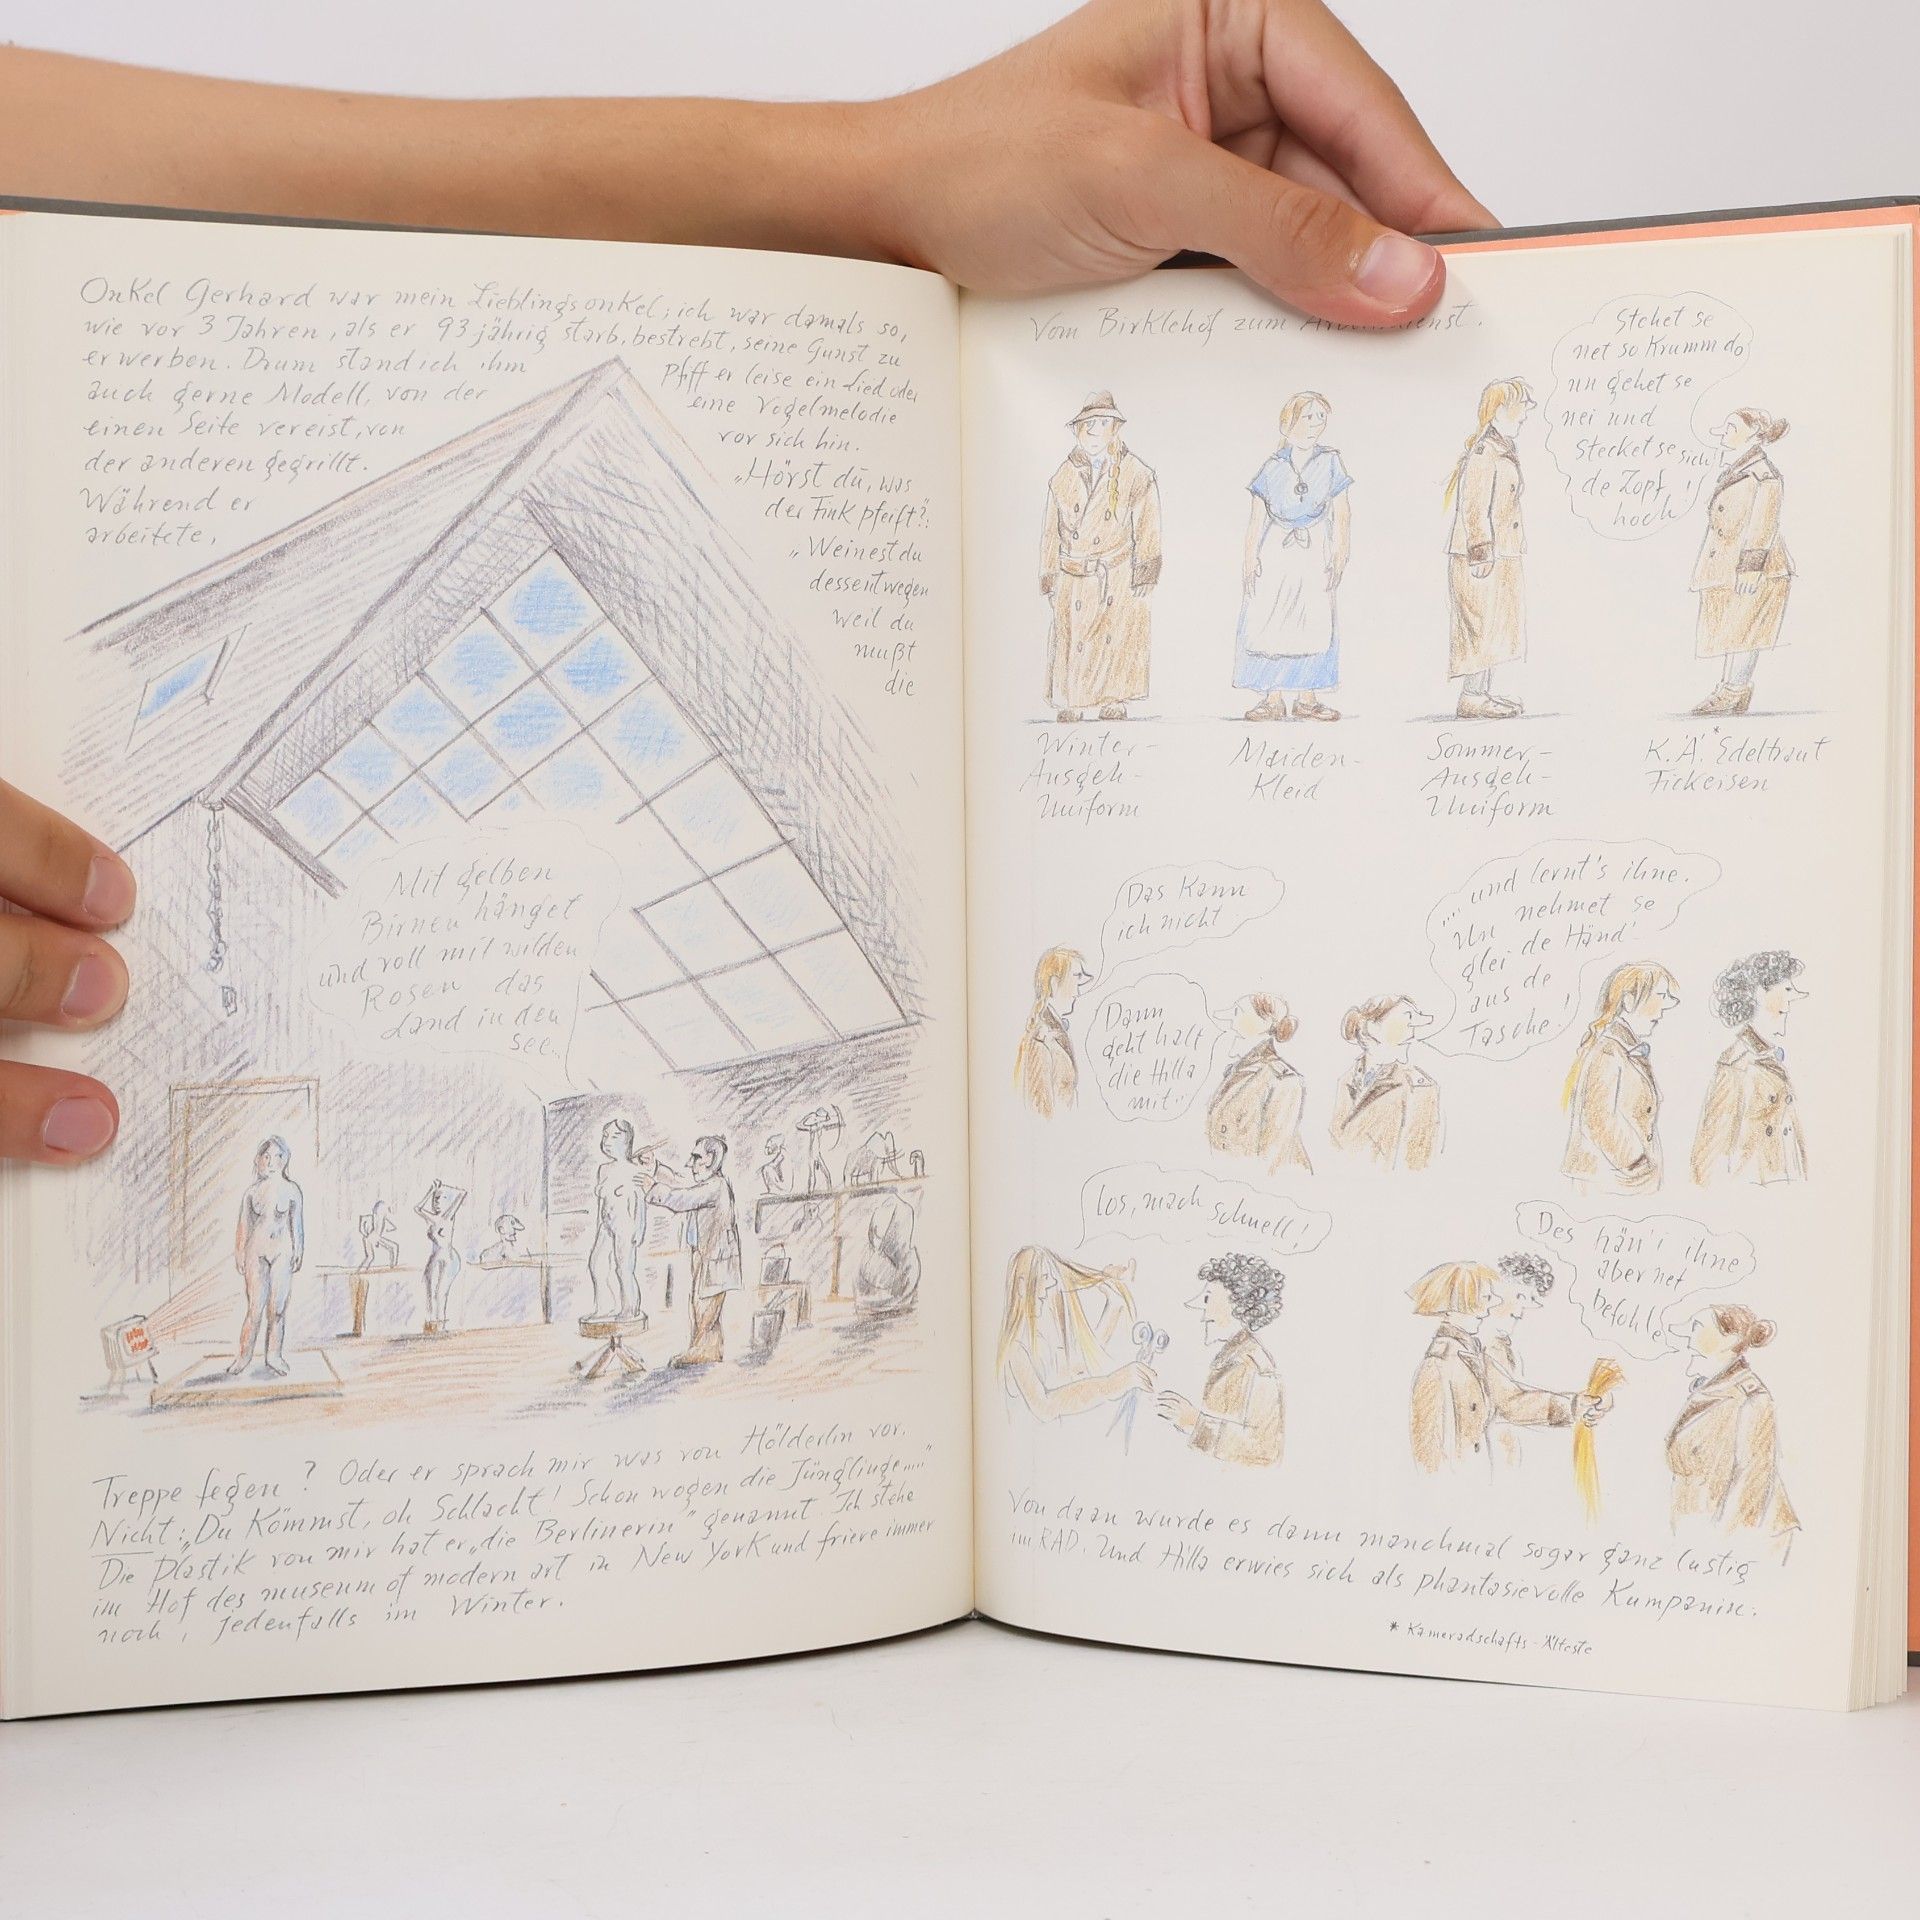 Onkel Gerhard war mein Lieblingsonkel; ich war damals so,
wie vor 3 Jahren, als er 93jährig starb, bestrebt, seine Gunst zu
erwerben. Drum stand ich ihm
auch gerne Modell, von der
einen Seite vereist, von
der anderen gegrillt.
Während er
arbeitete,
pfiff er leise ein Lied oder
eine Vogelmelodie
vor sich hin.
„Hörst du, was
der Fink pfeift?:
„Weinest du
dessentwegen
weil du
mußt
die
Mit gelben
Birnen hänget
und voll mit wilden
Rosen das
Land in den
See...
Treppe fegen? Oder er sprach mir was von Hölderlin vor.
Nicht: „Du kömmst, oh Schlacht! Schon wogen die Jünglinge....."
Die Plastik von mir hat er „die Berlinerin" genannt. Ich stehe
im Hof des museum of modern art in New York und friere immer
noch, jedenfalls im Winter.
Vom Birklehof zum
Stehet se
net so krumm do
un gehet se
nei und
stecket se sich
de Zopf
hoch!
Winter-
Ausgeh-
Uniform
Maiden-
Kleid
Sommer-
Ausgeh-
Uniform
K.Ä.* Edeltraut
Fickeisen
Das kann
ich nicht
Dann
geht halt
die Hilla
mit..
.... und lernt's ihne.
Un nehmet se
glei de Händ'
aus de
Tasche!
los, mach schnell!
Des hän'i ihne
aber net
befohle
Von da an wurde es dann manchmal sogar ganz lustig
im RAD. Und Hilla erwies sich als phantasievolle Kumpanin.
* Kameradschafts-Älteste